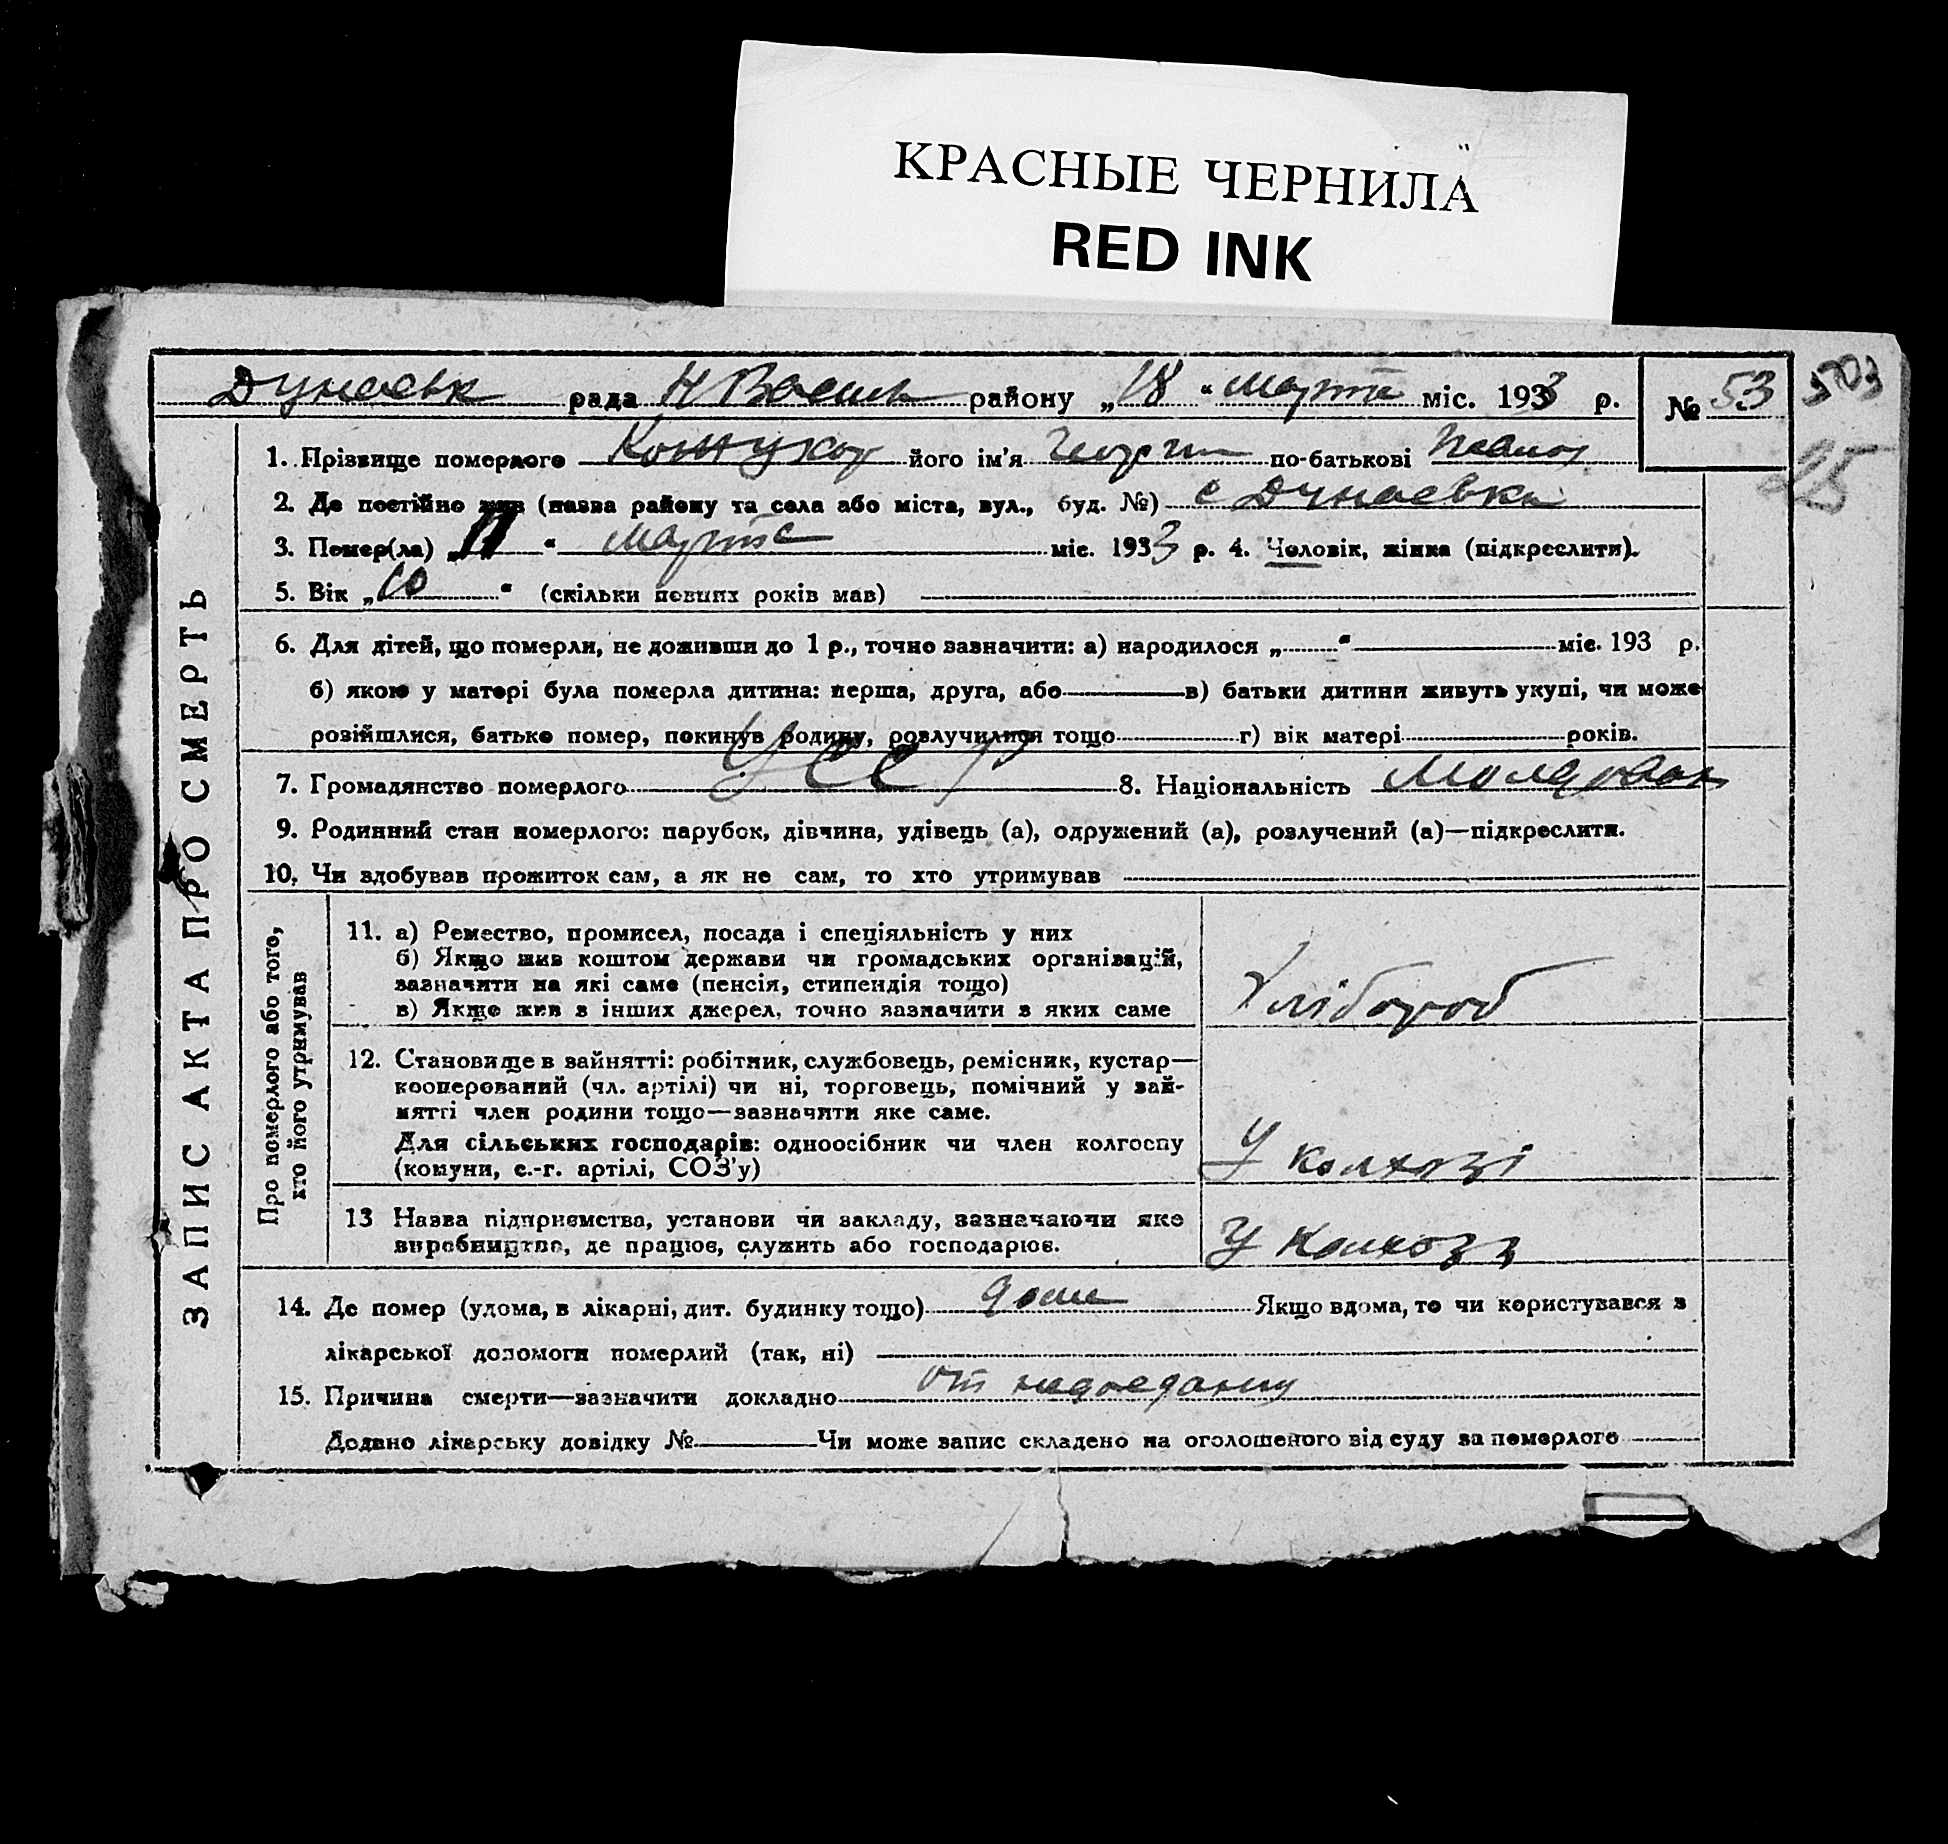 КРАСНЫЕ ЧЕРНИЛА
RED INK
Дунаевк рада Н Васил району „18“ марта міс. 1933 р. № 53 503
25
1. Прізвище померлого його ім'я Георги по-батькові
2. Де постійно жив (назва району та села або міста, вул., буд. №) с Дунаевка
3. Помер(ла) „11“ марта міс. 1933 р. 4. Чоловік, жінка (підкреслити).
5. Вік „60“ (скільки повних років мав)
6. Для дітей, що померли, не доживши до 1 р., точно зазначити: а) народилося „ “ міс. 193 р.
б) якою у матері була померла дитина: перша, друга, або в) батьки дитини живуть укупі, чи може
розійшлися, батько помер, покинув родину, розлучилися тощо г) вік матері років.
7. Громадянство померлого УССР 8. Національність Молдован
9. Родинний стан померлого: парубок, дівчина, удівець (а), одружений (а), розлучений (а)—підкреслити.
10. Чи здобував прожиток сам, а як не сам, то хто утримував
ЗАПИС АКТА ПРО СМЕРТЬ
Про померлого або того,
хто його утримував
11. а) Ремество, промисел, посада і спеціяльність у них
б) Якщо жив коштом держави чи громадських організацій,
зазначити на які саме (пенсія, стипендія тощо)
в) Якщо жив з інших джерел, точно зазначити з яких саме
Хлібороб
12. Становище в зайнятті: робітник, службовець, ремісник, кустар—
кооперований (чл. артілі) чи ні, торговець, помічний у зай-
нятті член родини тощо—зазначити яке саме.
Для сільських господарів: одноосібник чи член колгоспу
(комуни, с.-г. артілі, СОЗ'у)
У колхозі
13 Назва підприємства, установи чи закладу, зазначаючи яке
виробництво, де працює, служить або господарює.
У колхозі
14. Де помер (удома, в лікарні, дит. будинку тощо) дома Якщо вдома, то чи користувався з
лікарської допомоги померлий (так, ні)
15. Причина смерти—зазначити докладно от недоедания
Додано лікарську довідку № Чи може запис складено на оголошеного від суду за померлого